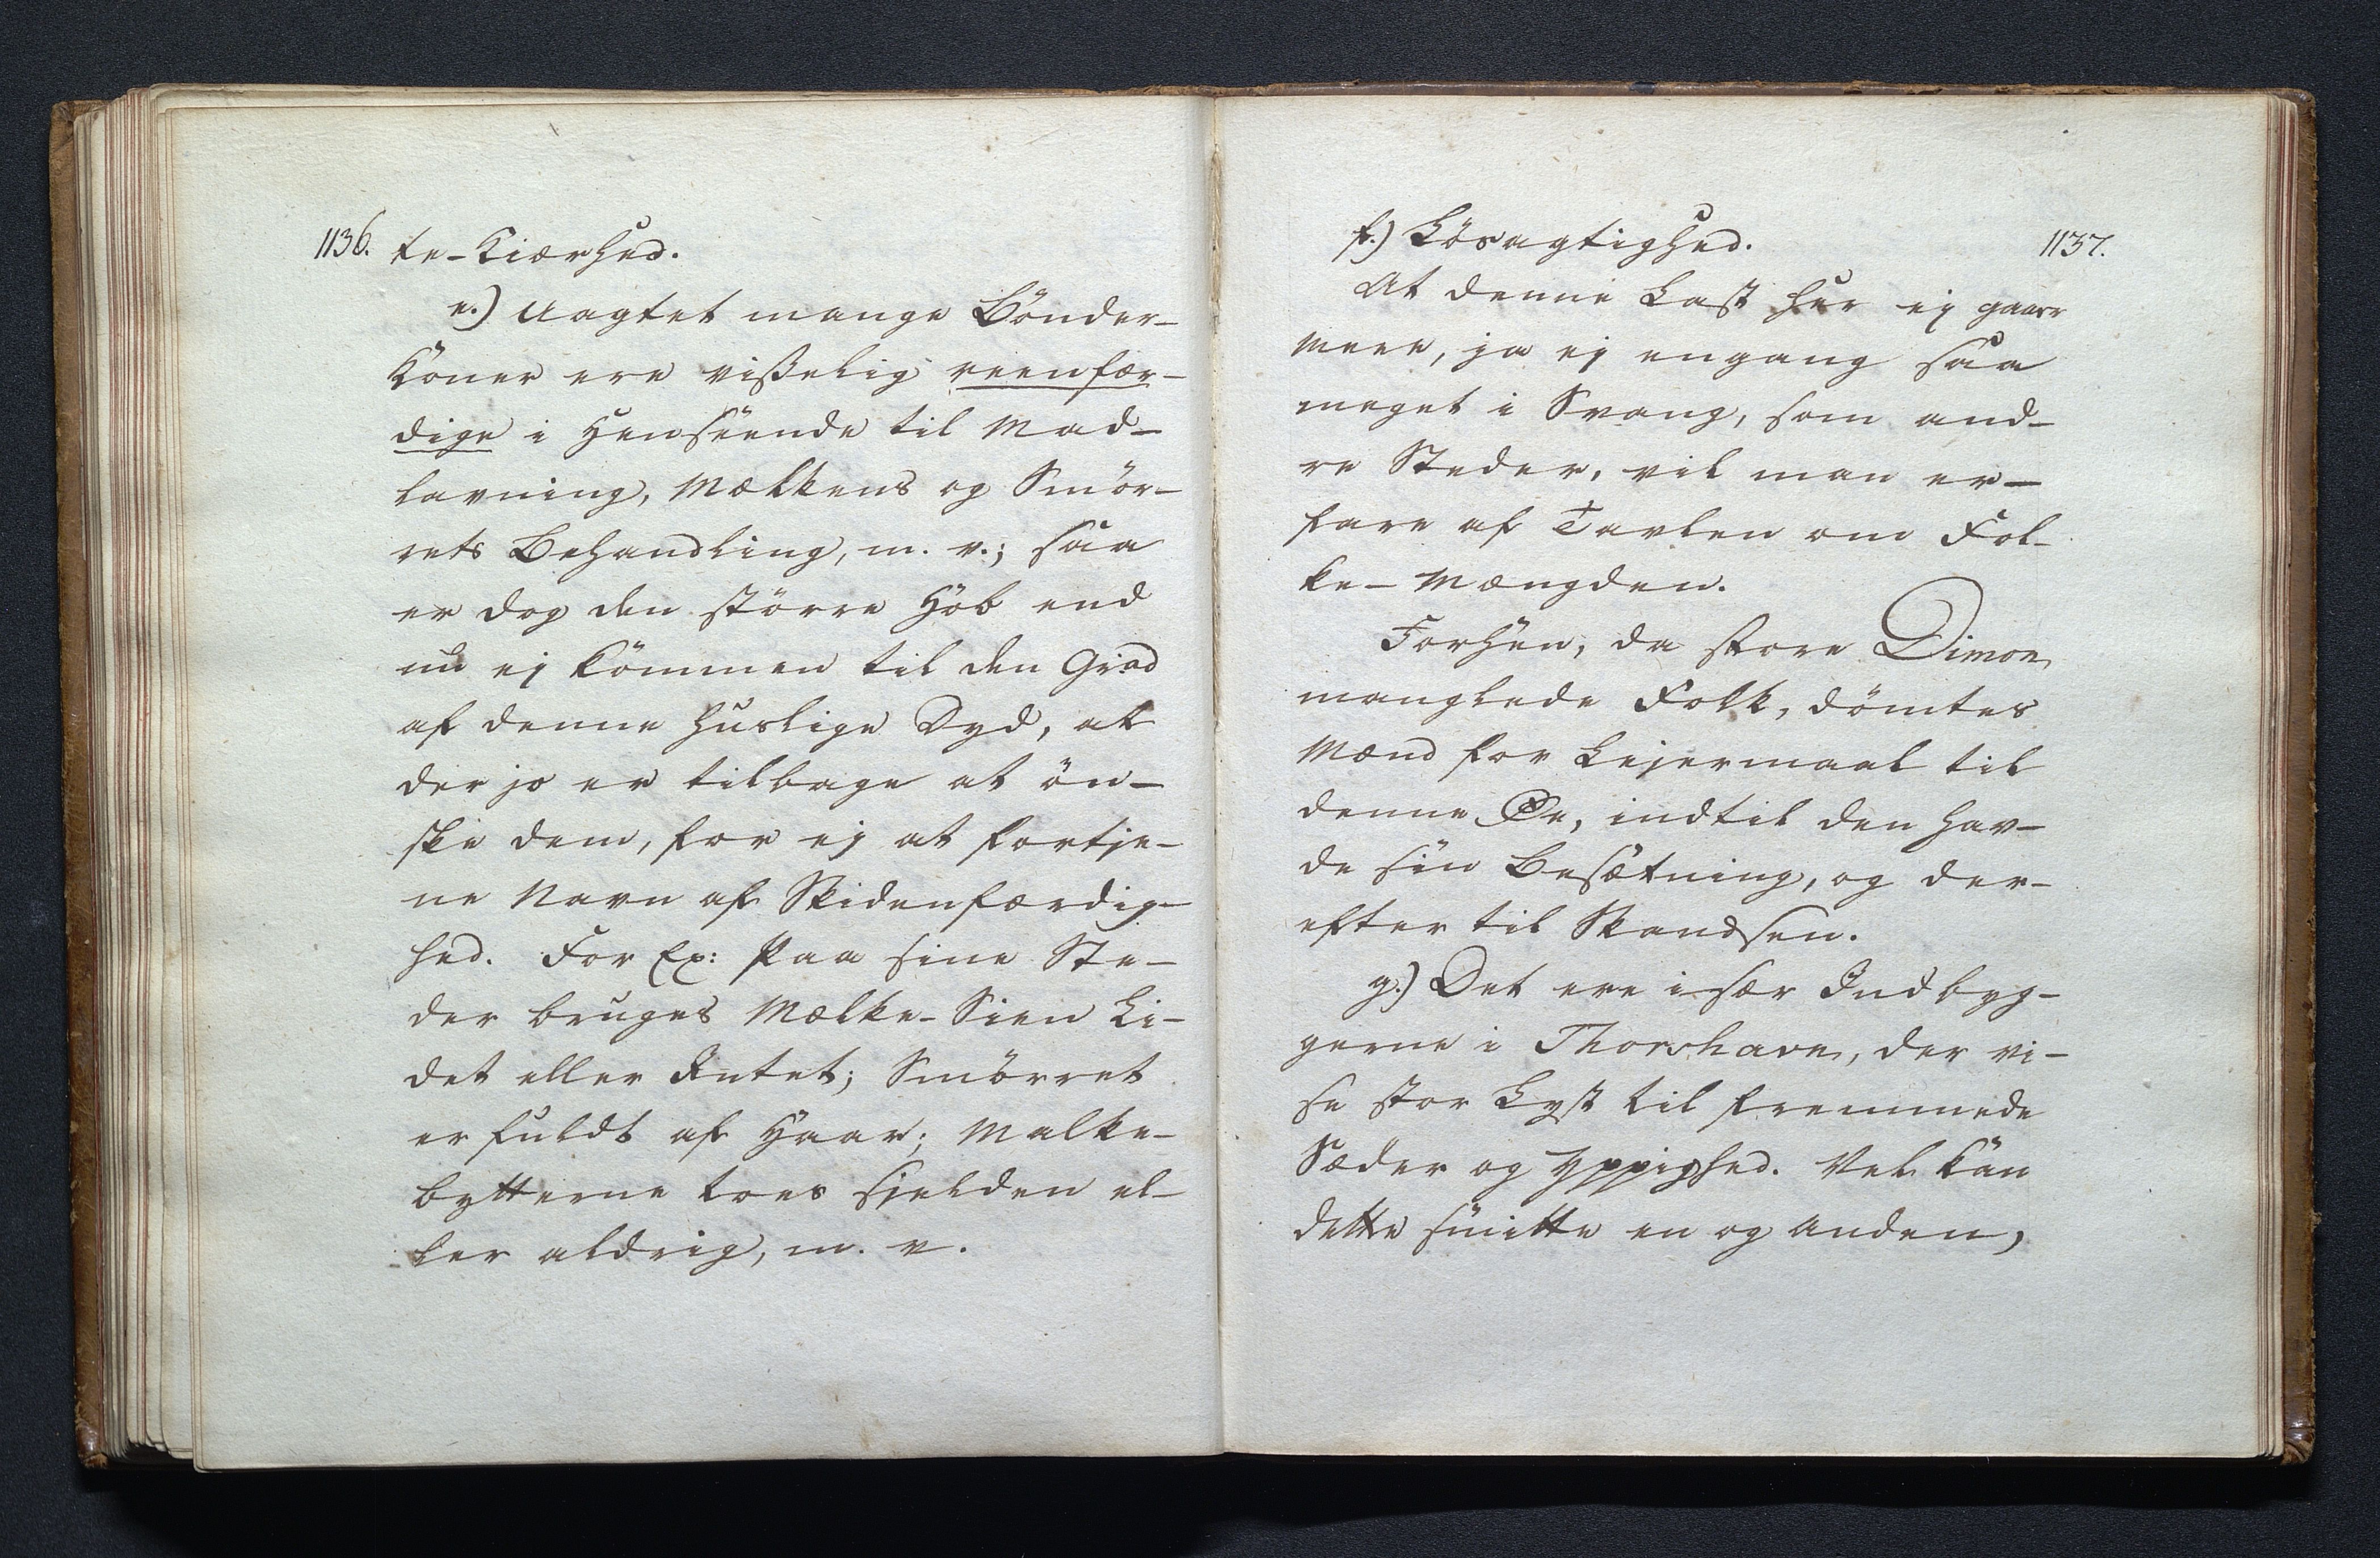 1136. te-Kiærhed.
e.) Uagtet mange Bönder-
Koner ere visselig reenfær-
dige i Henseende til Mad-
lavning, Mælkens og Smör-
rets Behandling, m. v.; saa
er dog den större Hob end
nu ej kommen til den Grad
af denne huslige Dyd, at
der jo er tilbage at ön-
ske dem, for ej at fortje-
ne Navn af Skidenfærdig-
hed. For Ex: Paa sine Ste-
der bruges Mælke-Sien li-
det eller Intet; Smörret
er fuldt af Haar; Malke-
bytterne toes sjelden el-
ler aldrig, m. v.
f.) Lösagtighed. 1137.
At denne Last her ej gaaer
mere, ja ej engang saa
meget i Svang, som and-
re Steder, vil man er-
fare af Tavlen om Fol-
ke-Mængden.
Forhen, da store Dimon
manglede Folk, dömtes
Mænd for Lejermaal til
denne Øe, indtil den hav-
de sin Besætning, og der-
efter til Skandsen.
g.) Det ere især Indbyg-
gerne i Thorshavn, der vi-
se stor Lyst til fremmede
Sæder og Yppighed. Vel kan
dette smitte en og anden,